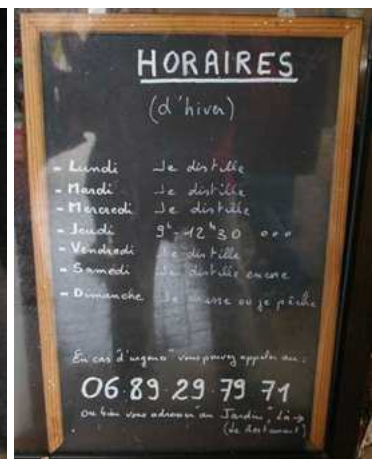 HORAIRES
(d'hiver)
- Lundi Je distille
- Mardi Je distille
- Mercredi Je distille
- Jeudi 9h-12h30 ...
- Vendredi Je distille
- Samedi Je distille encore
- Dimanche Je chasse ou je pêche
En cas "d'urgence" vous pouvez appeler au :
06.89.29.79.71
ou bien vous adresser au "Jardin", là →
(Le Restaurant)